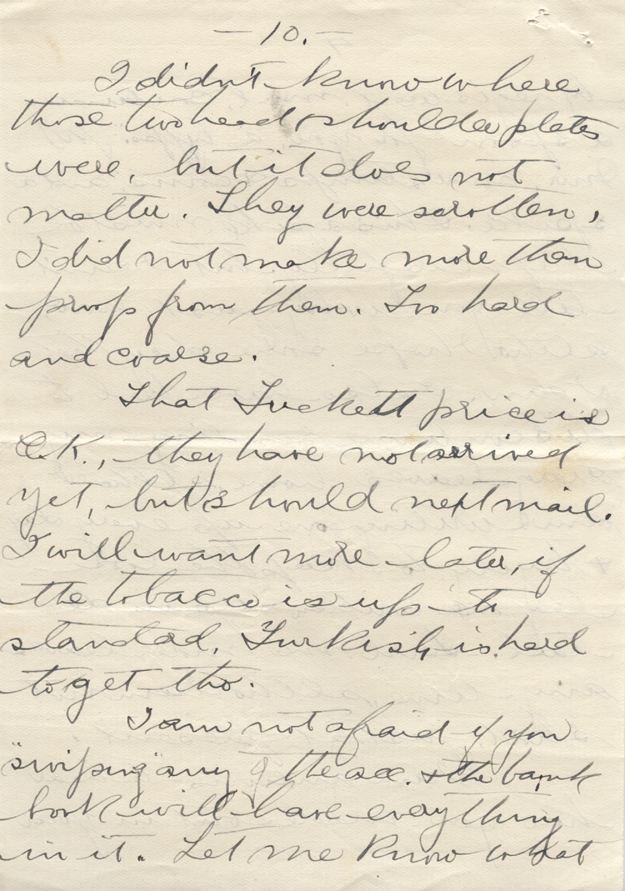 — 10. —
I didn't know where
those two head & shoulder plates
were, but it does not
matter. They were so rotten,
I did not make more than
proofs from them. Too hard
and coarse.
That Tuckett price is
O.K., they have not arrived
yet, but should next mail.
I will want more later, if
the tobacco is up to
standad. Turkish is hard
to get tho.
I am not afraid of you
"swiping" any of the acc. & the bank
book will have everything
in it. Let me know what